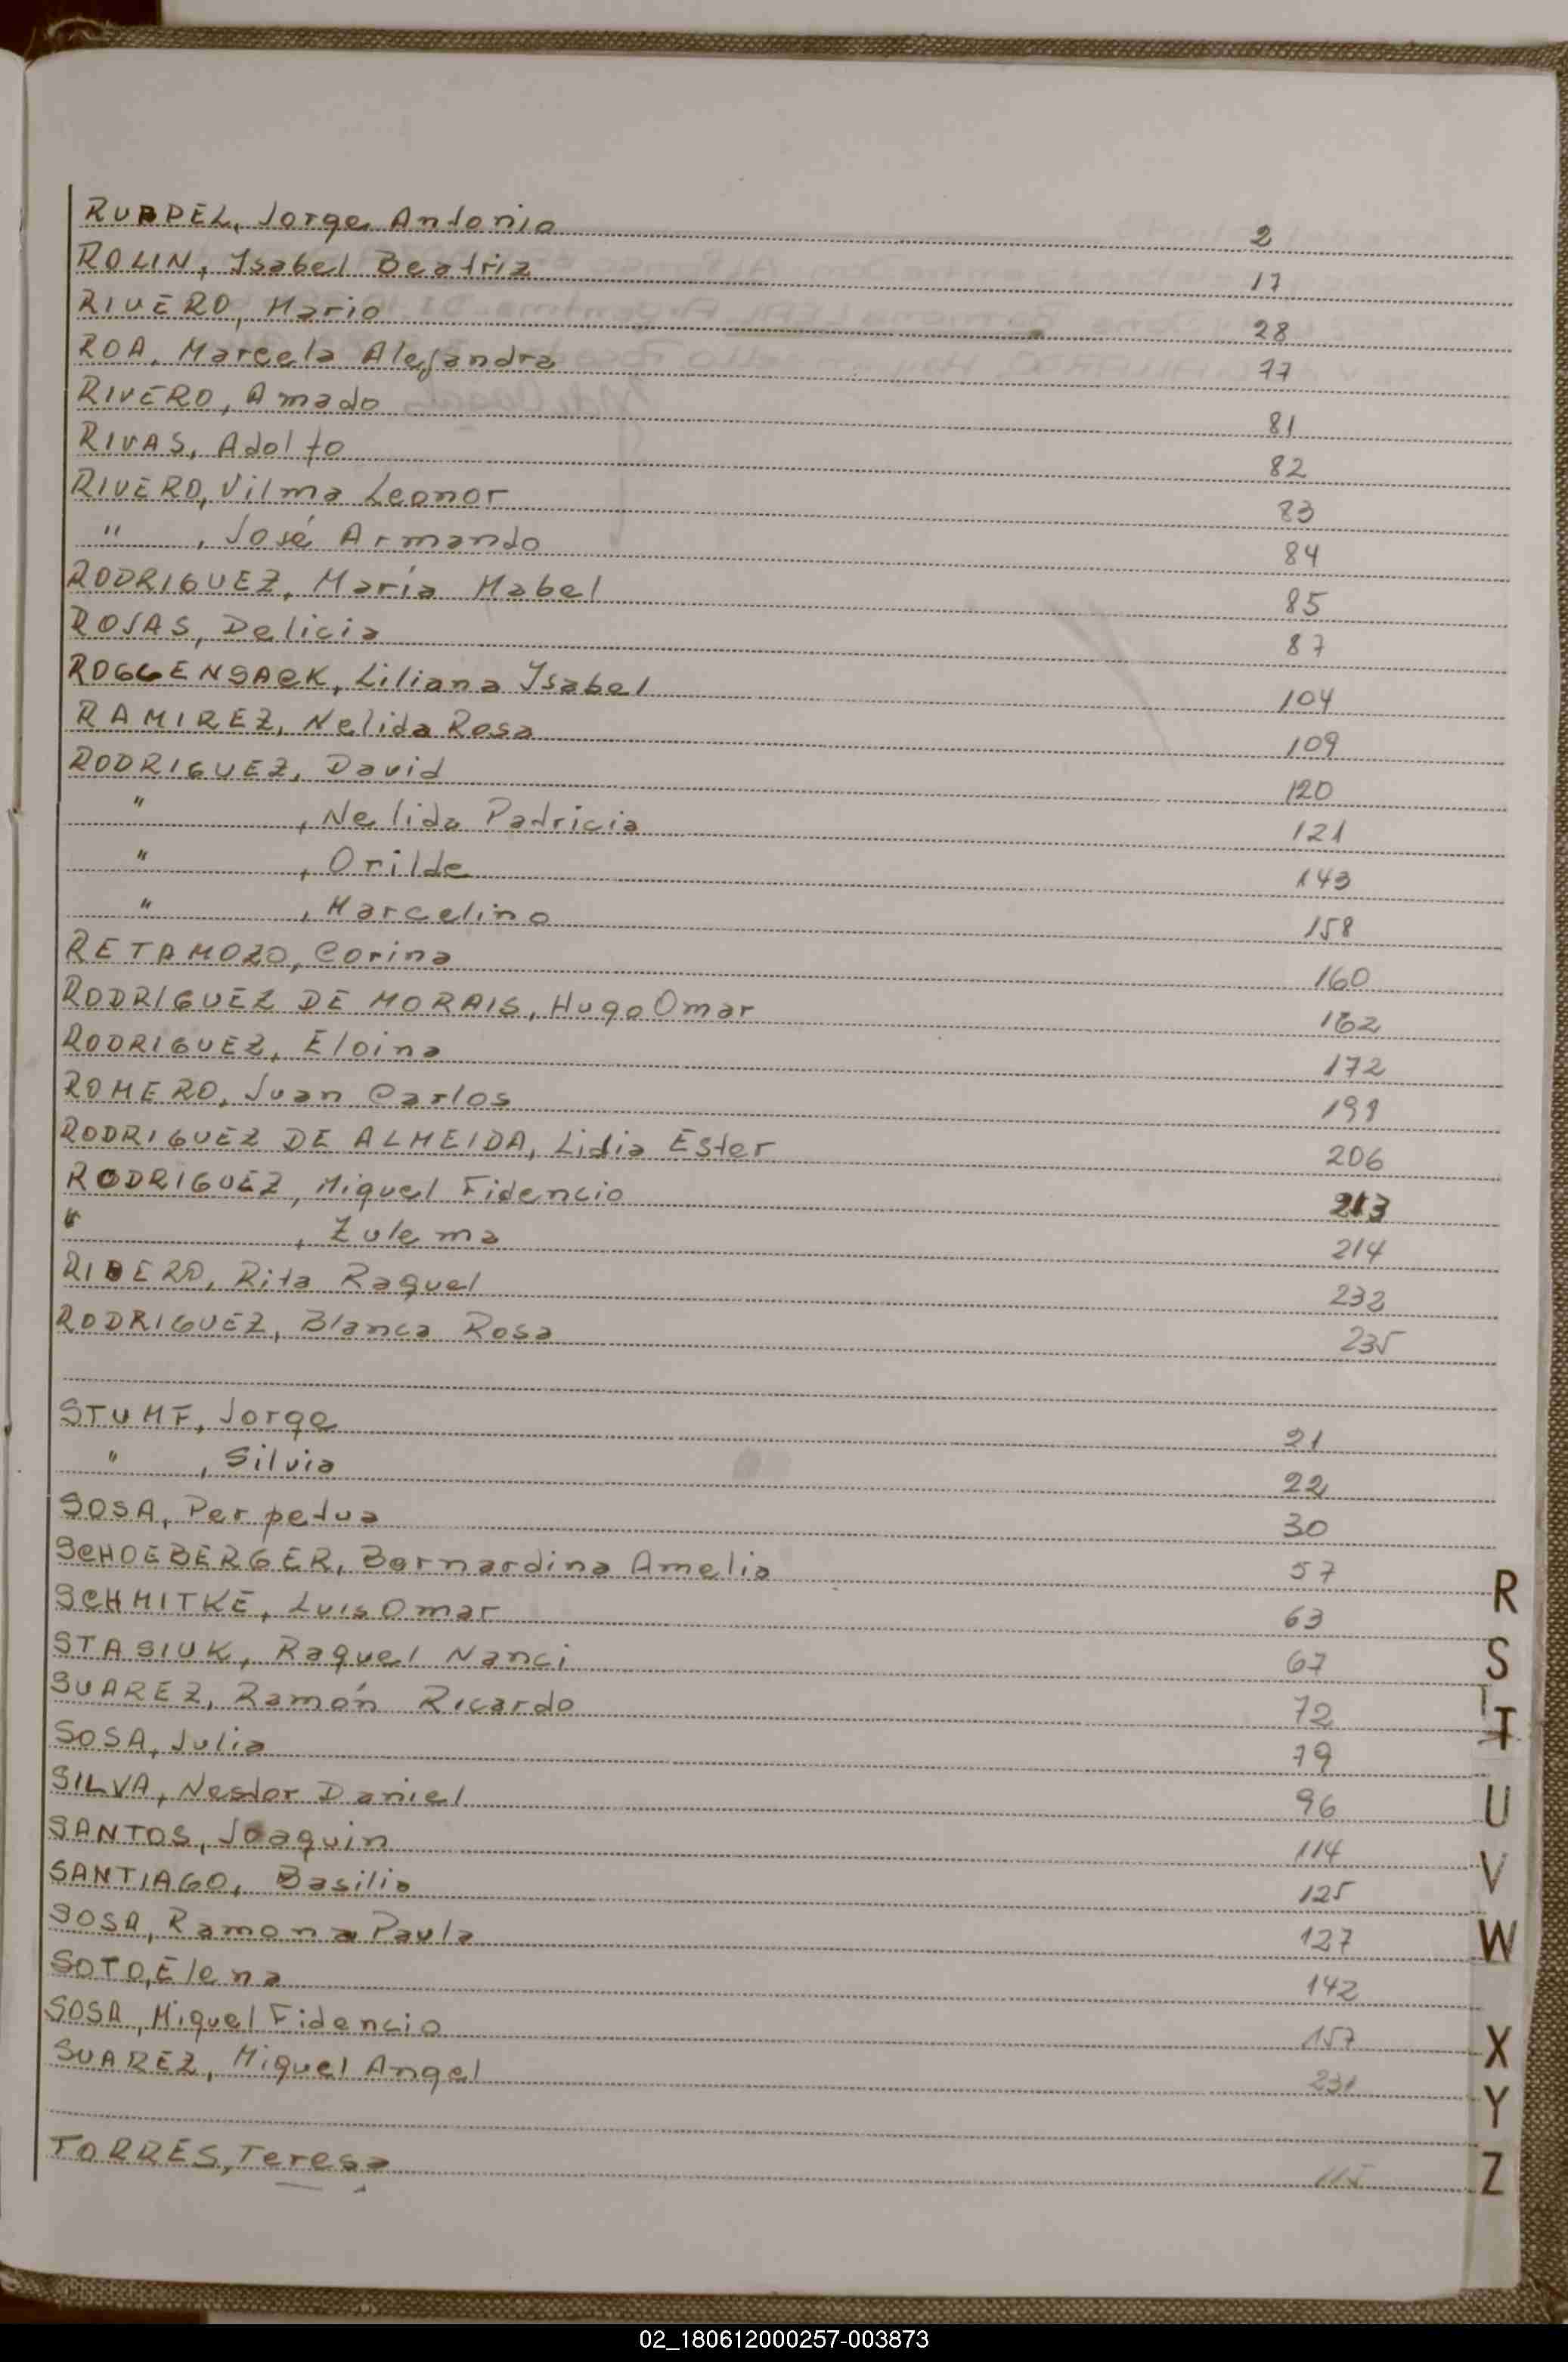 RUPPEL, Jorge Antonio 2
ROLIN, Isabel Beatriz 17
RIVERO, Mario 28
ROA, Marcela Alejandra 77
RIVERO, Amado 81
RIVAS, Adolfo 82
RIVERO, Vilma Leonor 83
" , José Armando 84
RODRIGUEZ, María Mabel 85
ROJAS, Delicia 87
ROGGENSACK, Liliana Isabel 104
RAMIREZ, Nelida Rosa 109
RODRIGUEZ, David 120
" , Nelida Patricia 121
" , Orilde 143
" , Marcelino 158
RETAMOZO, Corina 160
RODRIGUEZ DE MORAIS, Hugo Omar 162
RODRIGUEZ, Eloina 172
ROMERO, Juan Carlos
RODRIGUEZ DE ALMEIDA, Lidia Ester 206
RODRIGUEZ, Miguel Fidencio 213
" , Zulema 214
RIBERO, Rita Raquel 232
RODRIGUEZ, Blanca Rosa 235
STUMF, Jorge 21
" , Silvia 22
SOSA, Perpetua 30
SCHOEBERGER, Bernardina Amelia 57
SCHMITKE, Luis Omar 63
STASIUK, Raquel Nanci 67
SUAREZ, Ramón Ricardo 72
SOSA, Julia 79
SILVA, Nestor Daniel 96
SANTOS, Joaquin 114
SANTIAGO, Basilio 125
SOSA, Ramona Paula 127
SOTO, Elena 142
SOSA, Miguel Fidencio 157
SUAREZ, Miguel Angel 231
TORRES, Teresa 115
R
S
T
U
V
W
X
Y
Z
02_180612000257-003873